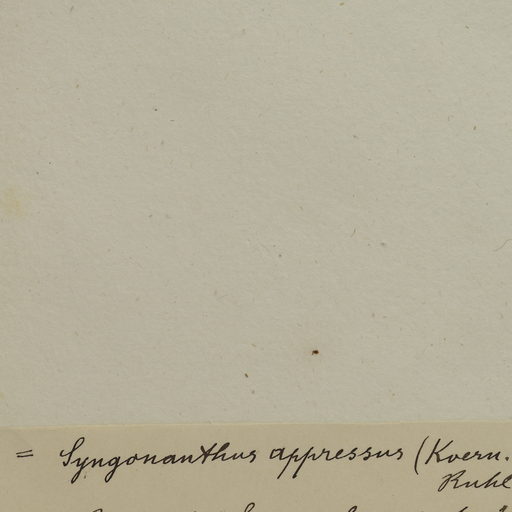 = Syngonanthus appressus (Koern.
Ruhl